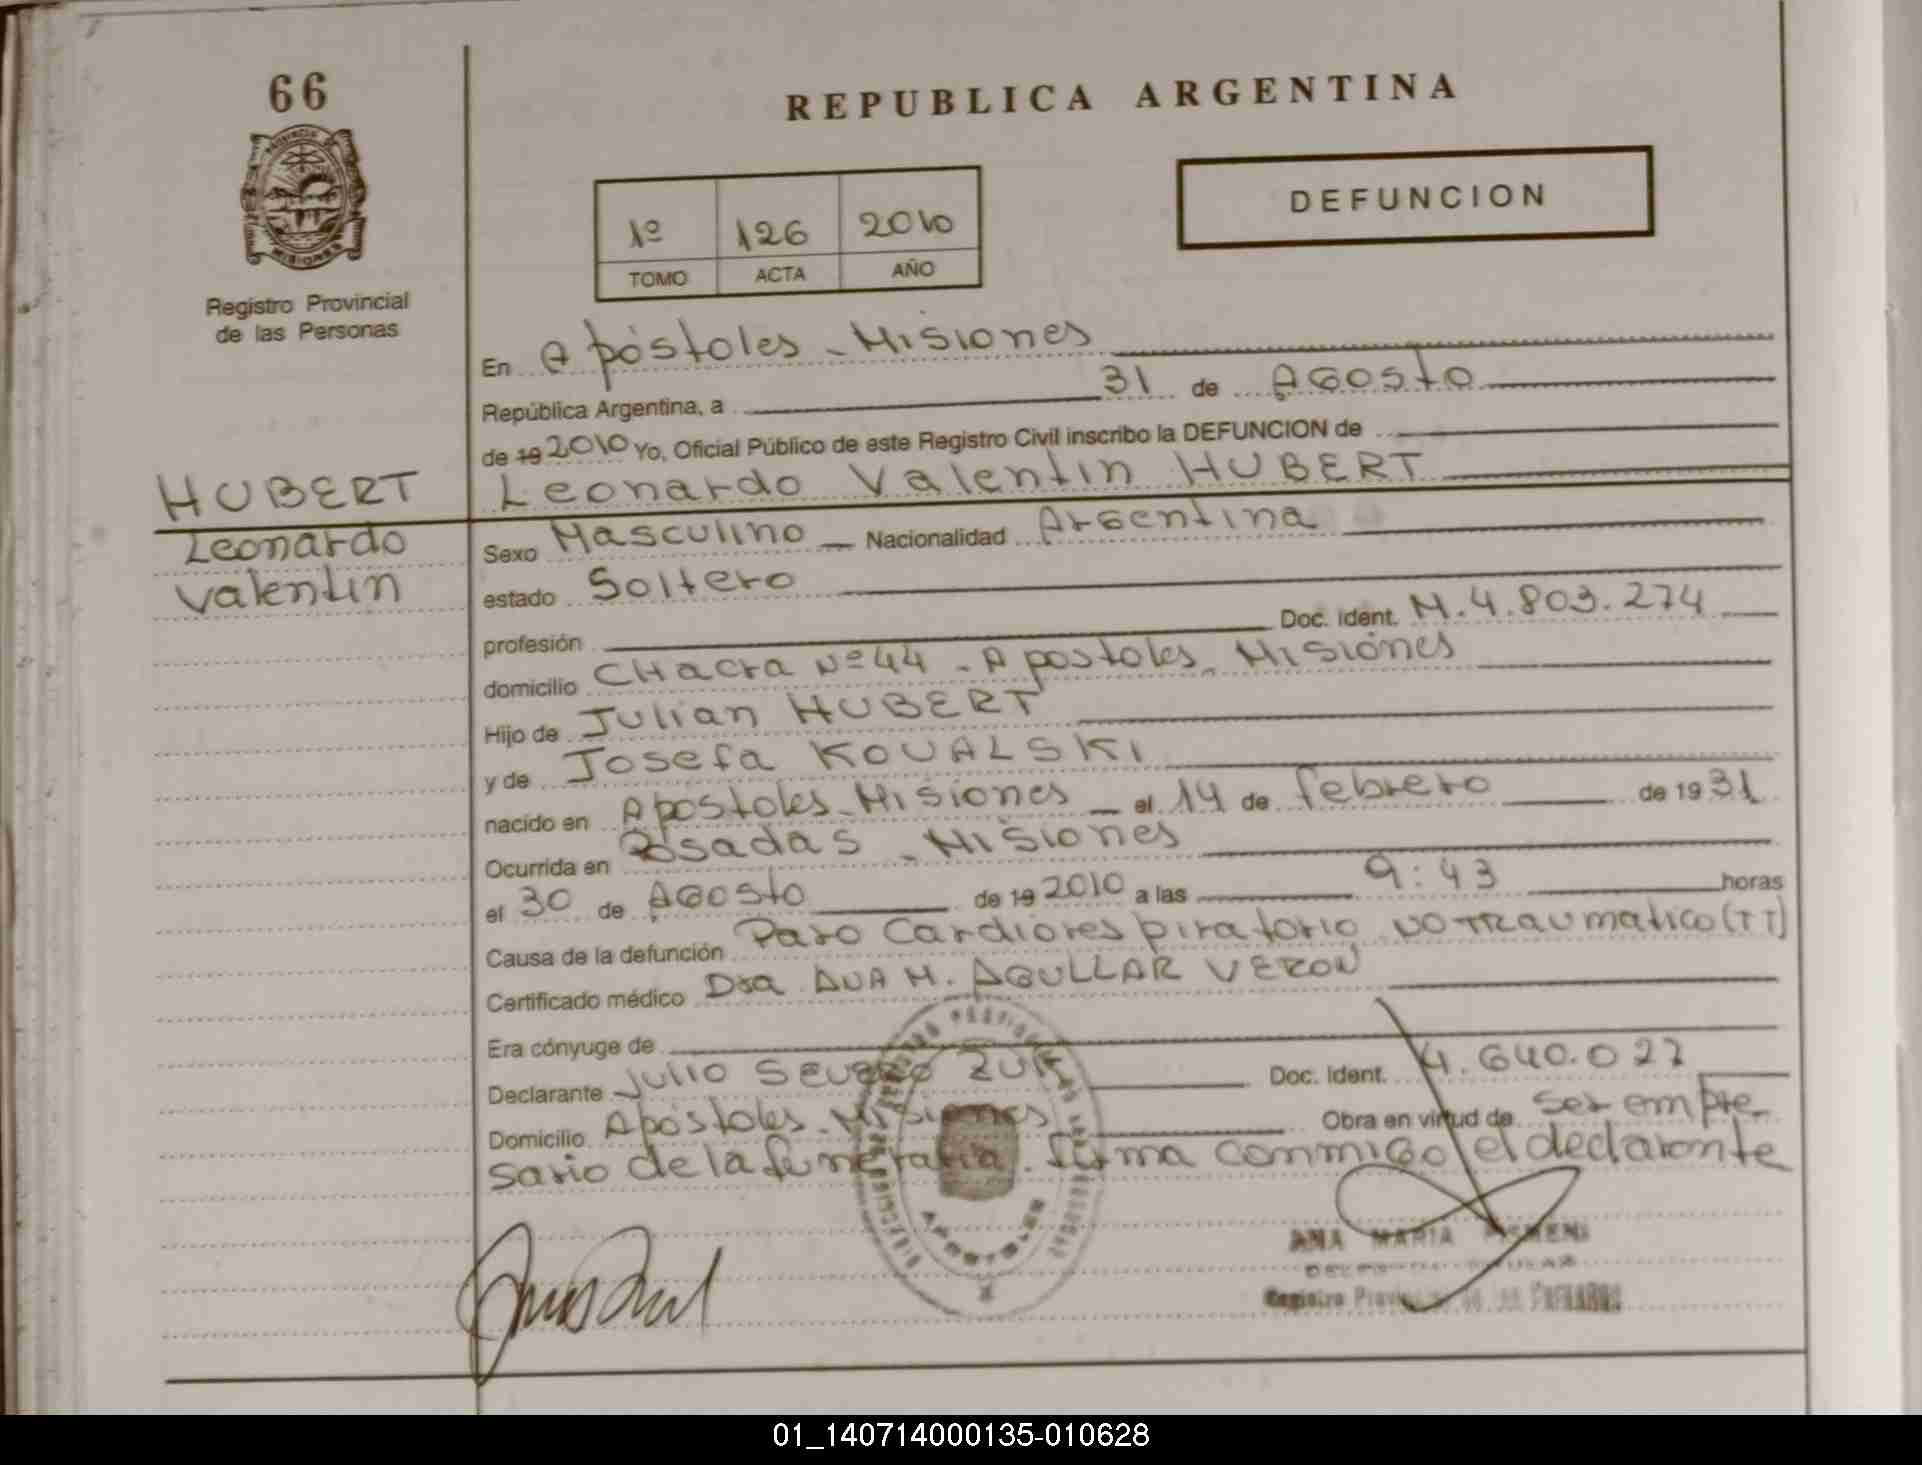 66
REPUBLICA ARGENTINA
PROVINCIA DE MISIONES
Registro Provincial
de las Personas
1º 126 2010
TOMO ACTA AÑO
DEFUNCION
En Apóstoles - Misiones
República Argentina, a 31 de Agosto
de 19 2010 Yo, Oficial Público de este Registro Civil inscribo la DEFUNCION de
HUBERT
Leonardo Valentin HUBERT
Leonardo
Valentin
Sexo Masculino Nacionalidad Argentina
estado Soltero
profesión Doc. Ident. M. 4.803.274
domicilio CHacra Nº 44 - Apostoles - Misiones
Hijo de Julian HUBERT
y de Josefa KOVALSKI
nacido en Apostoles - Misiones el 14 de febrero de 1931
Ocurrida en Posadas - Misiones
el 30 de Agosto de 19 2010 a las 9:43 horas
Causa de la defunción Paro Cardiorespiratorio NO TRaumatico (TT)
Certificado médico Dra ANA M. AGULLAR VERON
Era cónyuge de
Declarante Julio Severo ZUK Doc. Ident. 4.640.027
Domicilio Apóstoles - Misiones Obra en virtud de ser empre-
sario de la funeraria. firma conmigo el declarante
APOSTOLES
ANA MARIA
Registro
01_140714000135-010628